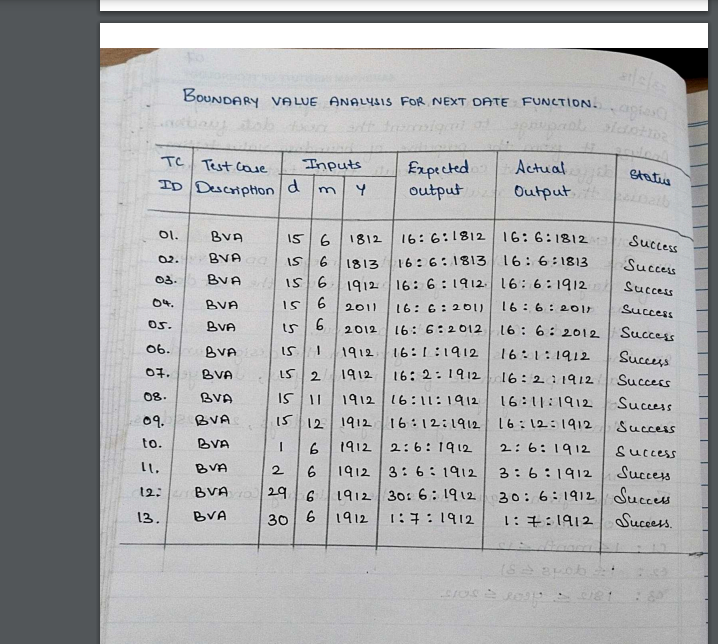 BOUNDARY VALUE ANALYSIS FOR NEXT DATE FUNCTION.
TC ID Test Case Description Inputs d m y Expected output Actual Output Status
01. BVA 15 6 1812 16:6:1812 16:6:1812 Success
02. BVA 15 6 1813 16:6:1813 16:6:1813 Success
03. BVA 15 6 1912 16:6:1912 16:6:1912 Success
04. BVA 15 6 2011 16:6:2011 16:6:2011 Success
05. BVA 15 6 2012 16:6:2012 16:6:2012 Success
06. BVA 15 1 1912 16:1:1912 16:1:1912 Success
07. BVA 15 2 1912 16:2:1912 16:2:1912 Success
08. BVA 15 11 1912 16:11:1912 16:11:1912 Success
09. BVA 15 12 1912 16:12:1912 16:12:1912 Success
10. BVA 1 6 1912 2:6:1912 2:6:1912 Success
11. BVA 2 6 1912 3:6:1912 3:6:1912 Success
12: BVA 29 6 1912 30:6:1912 30:6:1912 Success
13. BVA 30 6 1912 1:7:1912 1:7:1912 Success.